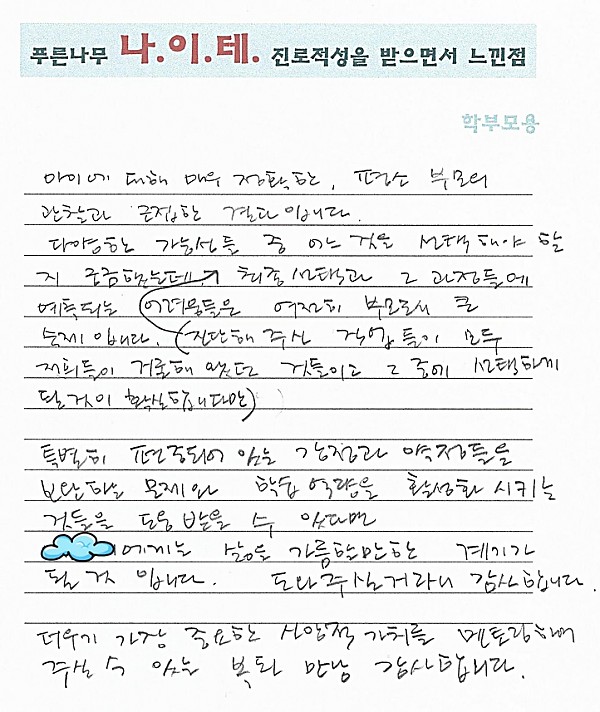 푸른나무 나.이.테. 진로적성을 받으면서 느낀점
학부모용
아이에 대해 매우 정확한, 평소 부모의
관찰과 근접한 결과입니다.
다양한 가능성들 중 어느 것을 선택해야 할
지 궁금했는데, 최종선택과 그 과정들에
예측되는 어려움들은 여전히 부모로서 큰
숙제입니다. (진단해 주신 직업들이 모두
저희들이 거론해 왔던 것들이고 그 중에 선택하게
될것이 확실합니다만)
특별히 편중되어 있는 강점과 약점들을
보완하는 문제와 학습역량을 활성화 시키는
것들을 도움 받을 수 있다면
에게는 삶을 가름할만한 계기가
될 것 입니다. 도와주실거라니 감사합니다.
더우기 가장 중요한 신앙적 가치를 멘토링하여
주실 수 있는 복된 만남 감사합니다.